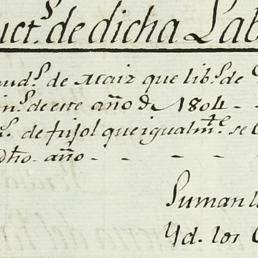 uct.ˢ de dicha Lab
ud.ˢ de Maiz que lib.ˢ de
in.ˢ de este año de 1804 - -
.ˢ de frijol que igualm.ᵗᵉ se
dho. año - - - - -
Suman l
Yd. los